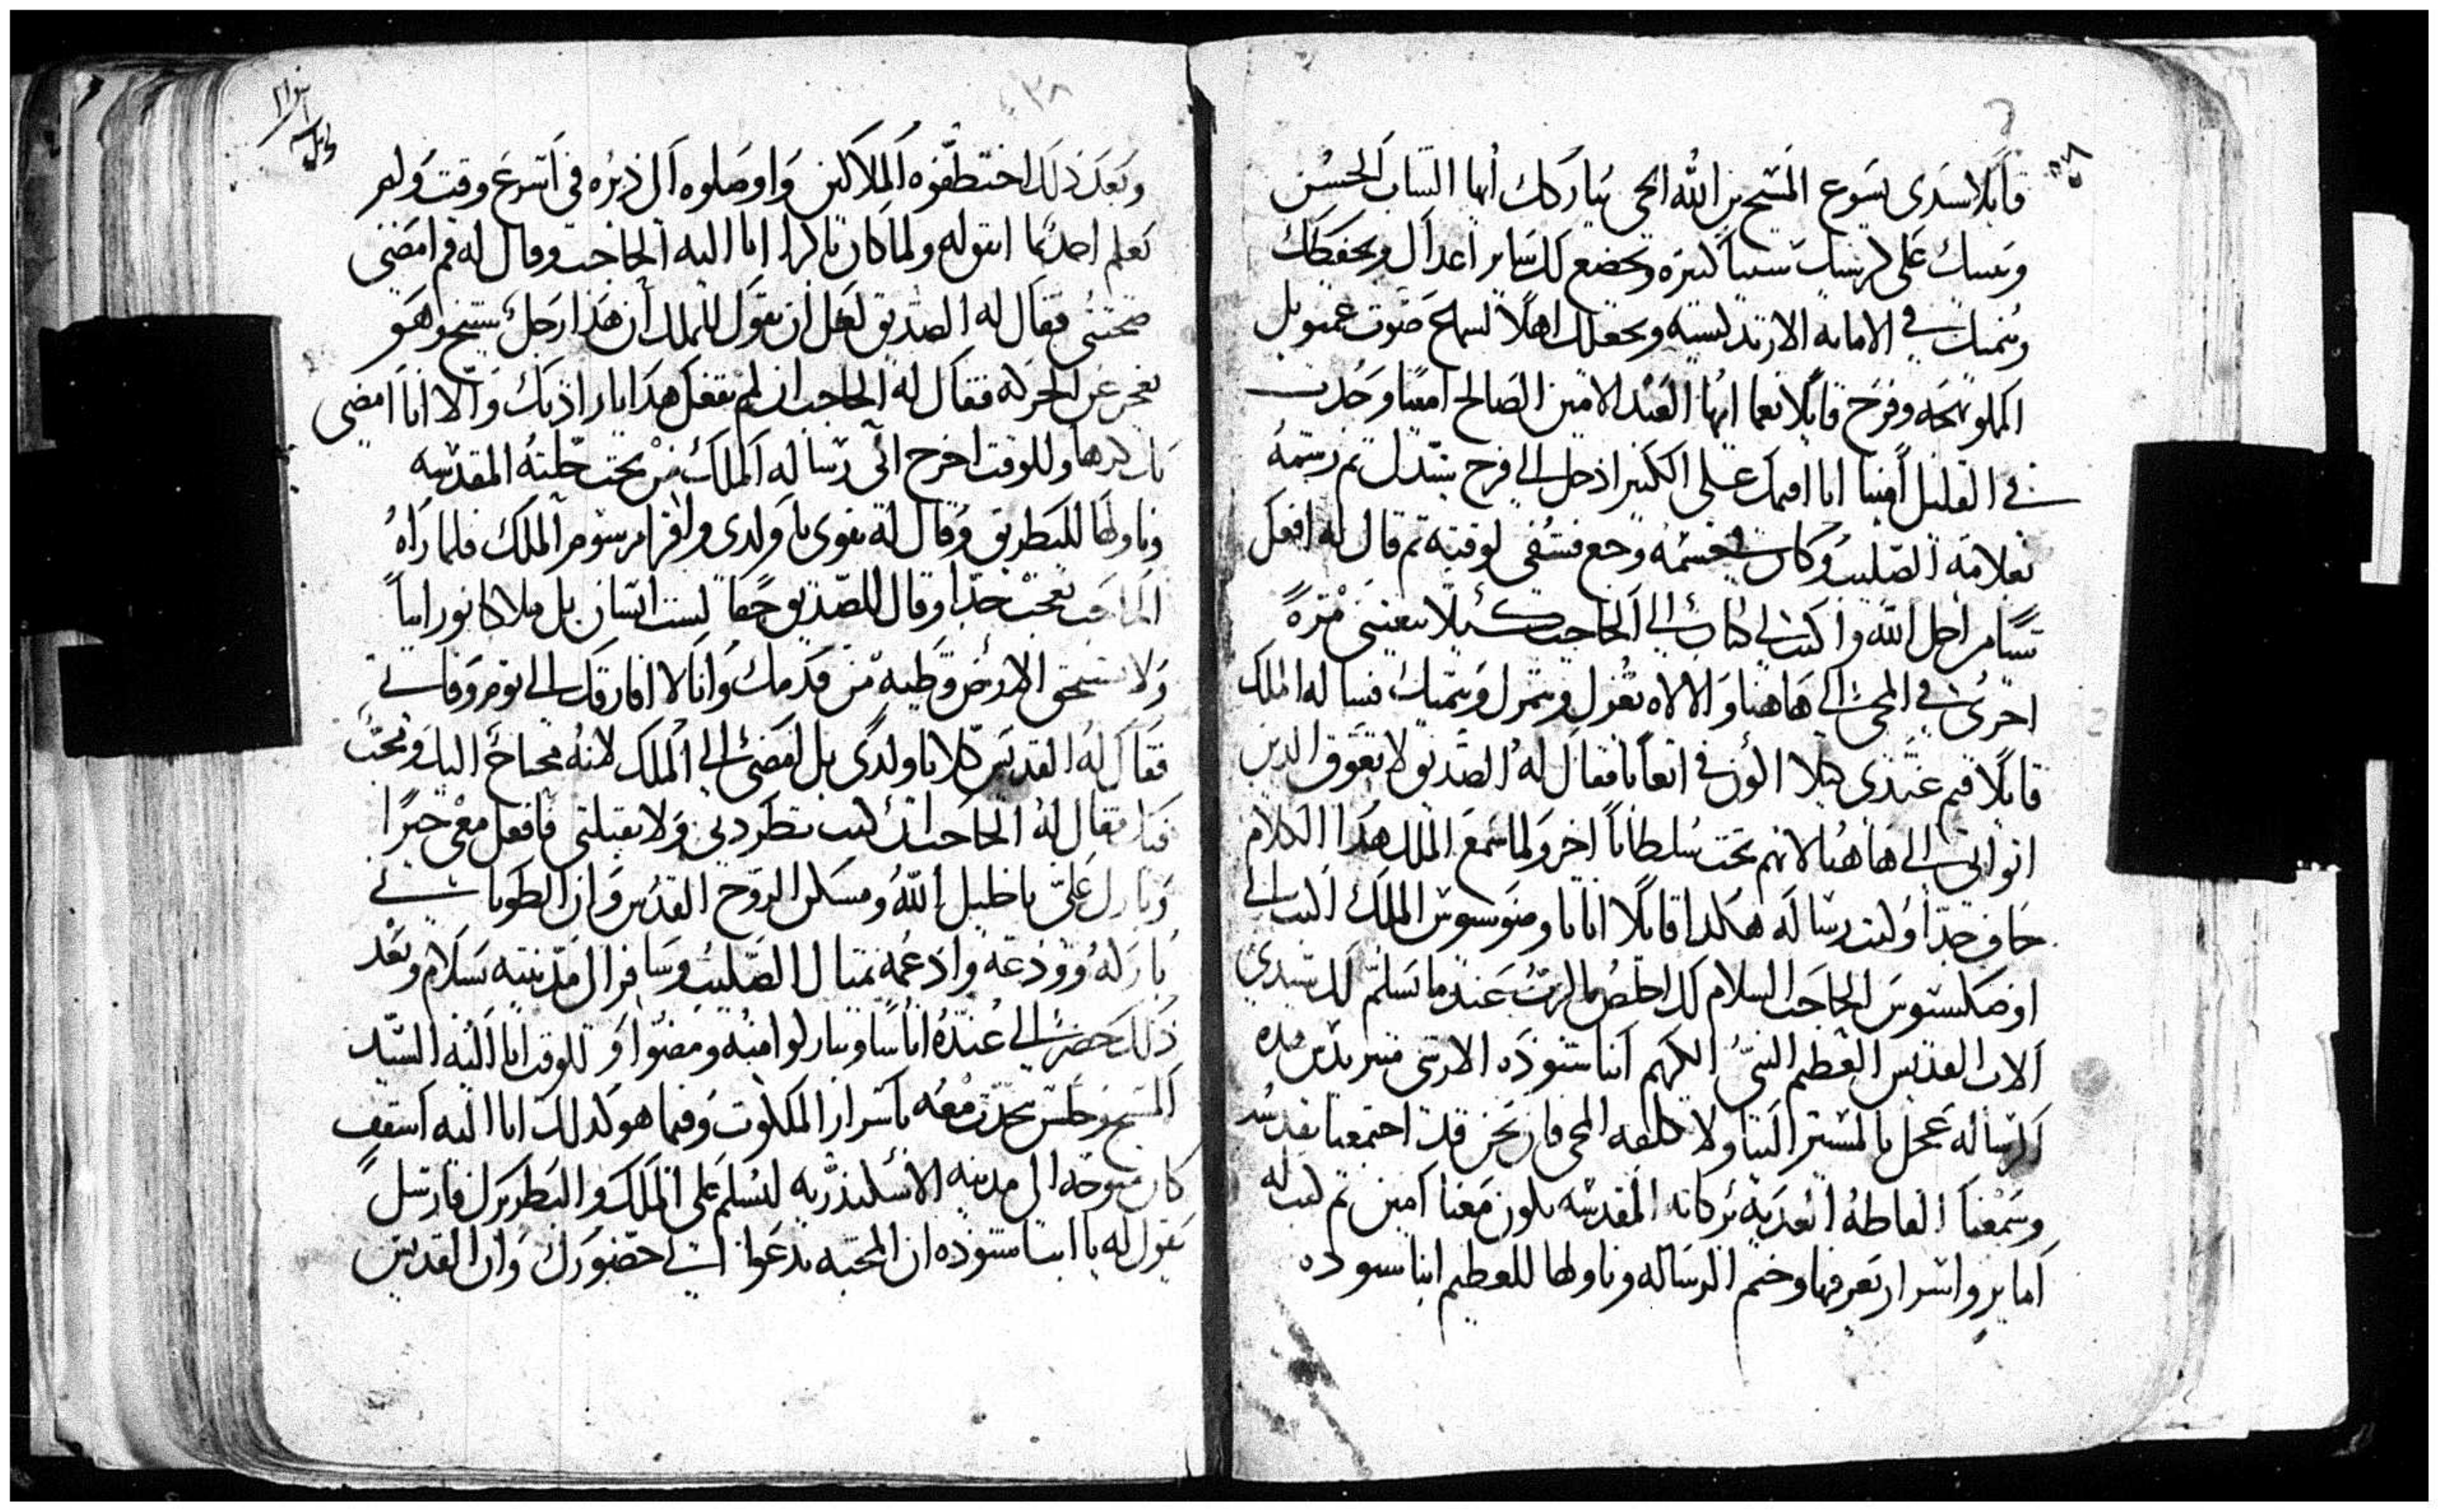 قايلا سيدى يسوع المسيح بن الله الحي يباركك ايها الشاب الحسن
ويتبتك على كرسيك سنينا كتيره ويخضع لك ساير اعداك ويحفظك
ويتبتك في الامانه الارتدكسيه ويجعلك اهلا لسماع صوت عمنويل
المملو بهجه وفرح قايلا نعما ايها العبد الامين الصالح امينا وجدت
في القليل امينا انا اقيمك على الكتير ادخل الى فرح سيدك تم رسمه
بعلامة الصليب وكان بجسمه وجع فشفي لوقته تم قال له افعل
شيا من اجل الله واكتب لي كتاب الى الحاجب كيلا يتعبني مرة
اخرى في المجى الى هاهنا والاله يعزل ويتبتك فساله الملك
قايلا قيم عندي كيلا اكون في اتعابا فقال له الصديق لا تعوق الدين
اتوا بي الى هاهنا لانهم تحت سلطانا اخر ولما سمع الملك هدا الكلام
خاف جدا وكتب رساله هكدا قايلا انا الملك اكتب الى
الحاجب السلام لك اخلص بالرب عندما تسلم لك سيدي
الاب القديس العظيم النبي الكهم انبا شنوده الارشي مندريدس هده
الرساله عجل بالمسير الينا ولا تكلفه المجى فان نحن قد اجتمعنا بقدسه
وسمعنا الفاظه العدبه بركاته المقدسه تكون معنا امين تم كتب له
اماير واسرار تعرفها وختم الرساله وناولها للعظيم انبا شنوده
وبعد ذلك اختطفوه الملاكين واوصلوه الى ديره في اسرع وقت ولم
تعلم احدا بما اتقوله ولما كان باكرا اتا اليه الحاجب وقال له قم امضى
صحبتي فقال له الصديق لعل ان تقول للملك ان هدا رجل شيخ وهو
يعجز عن الحركه فقال له الحاجب ان لم تفعل هدا بارادتك والا انا امضي
بك كرها وللوقت اخرج ابي رسالة الملك من تحت حلته المقدسه
وناولها للبطريق وقال له تقوى يا ولدى واقرا مرسوم الملك فلما راه
الحاجب تعجب جدا وقال للصديق حقا لست انسان بل ملاكا نورانيا
ولا تستحق الارض وطية من قدميك وانا لا افارقك الى يوم وفاتي
فقال له القديس كلا يا ولدي بل امضى الى الملك لانه محتاج اليك ومحب
فيك فقال له الحاجب ان كنت تطردني ولا تقبلني فافعل معى خيرا
وبارك علي يا خليل الله ومسكن الروح القدس وان الطوباني
باركه وودعه وادعمه بمتال الصليب وسافر الى مدينته بسلام وبعد
ذلك حضر الى عنده اناسا وتباركوا منه ومضوا وللوقت اتا اليه السيد
المسيح وجلس يتحدث معه باسرار الملكوت وفيما هو كدلك اتا اليه اسقف
كان متوجه الى مدينه الاسكندريه ليسلم على الملك والبطريرك فارسل
يقول له يا ابينا شنوده ان المحبه تدعوا الى حضورك وان القديس